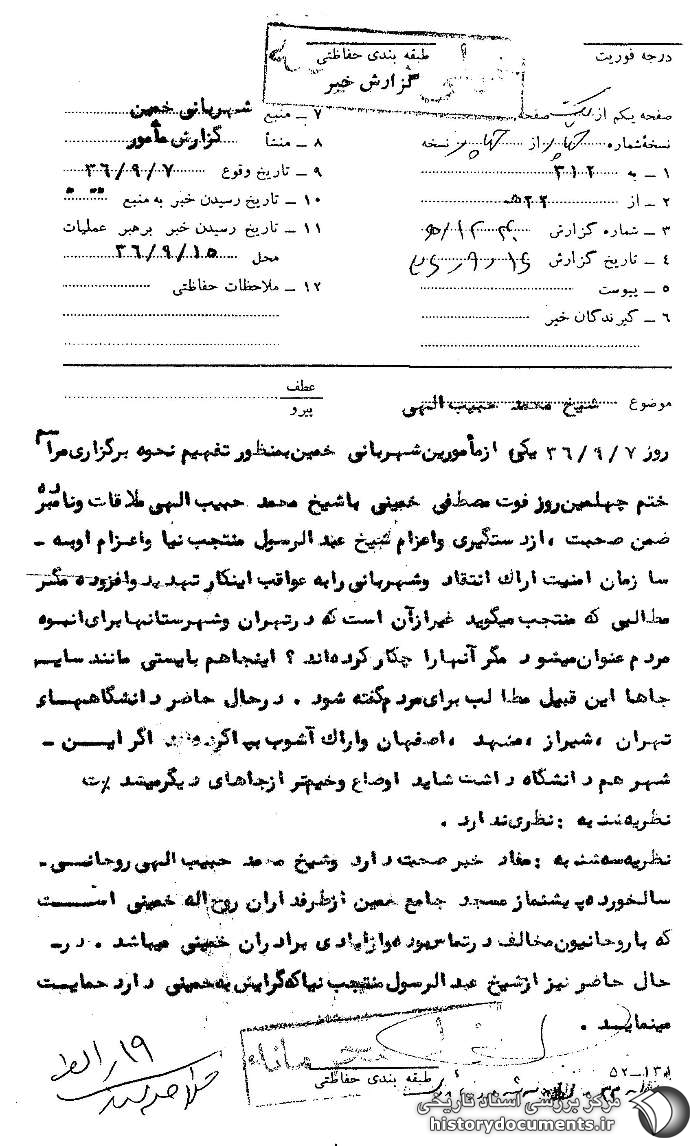 درجه فوریت
طبقه بندی حفاظتی
گزارش خبر
صفحه یکم از یک صفحه
نسخهٔ شماره چهار از چهار نسخه
۱ ـ به ۳۱۲
۲ ـ از ۲۲ ه‍
۳ ـ شماره گزارش
۴ ـ تاریخ گزارش
۵ ـ پیوست
۶ ـ گیرندگان خبر
۷ ـ منبع شهربانی خمین
۸ ـ منشأ گزارش مأمور
۹ ـ تاریخ وقوع ۳۶/۹/۷
۱۰ ـ تاریخ رسیدن خبر به منبع
۱۱ ـ تاریخ رسیدن خبر برهبر عملیات
محل ۳۶/۹/۱۵
۱۲ ـ ملاحظات حفاظتی
موضوع شیخ محمد حبیب الهی
عطف
پیرو
روز ۳۶/۹/۷ یکی ازمأمورین شهربانی خمین بمنظور تفهیم نحوه برگزاری مراسم
ختم چهلمین روز فوت مصطفی خمینی باشیخ محمد حبیب الهی ملاقات ونامبرده
ضمن صحبت ،ازدستگیری واعزام شیخ عبدالرسول منتجب نیا واعزام اوبه ـ
سازمان امنیت اراك انتقاد وشهربانی رابه عواقب اینکار تهدید وافزوده مگر
مطالبی که منتجب میگوید غیرازآن است که درتهران وشهرستانها برای انبوه
مردم عنوان میشود مگر آنهارا چکار کرده اند ؟ اینجاهم بایستی مانند سایر
جاها این قبیل مطالب برای مردم گفته شود . درحال حاضر دانشگاههای
تهران ،شیراز ،مشهد ،اصفهان واراك آشوب بپا کرده اند اگر این ـ
شهر هم دانشگاه داشت شاید اوضاع وخیم تر ازجاهای دیگر میشد ٪ت
نظریه شنبه : نظری ندارد .
نظریه سه شنبه : مفاد خبر صحت دارد وشیخ محمد حبیب الهی روحانی ـ
سالخورده پیشنماز مسجد جامع خمین ازطرفداران روح اله خمینی است
که باروحانیون مخالف درتماس بوده وازایادی برادران خمینی میباشد . در ـ
حال حاضر نیز ازشیخ عبدالرسول منتجب نیاکه گرایش به خمینی دارد حمایت
مینماید .
طبقه بندی حفاظتی
مرکز بررسی اسناد تاریخی
historydocuments.ir